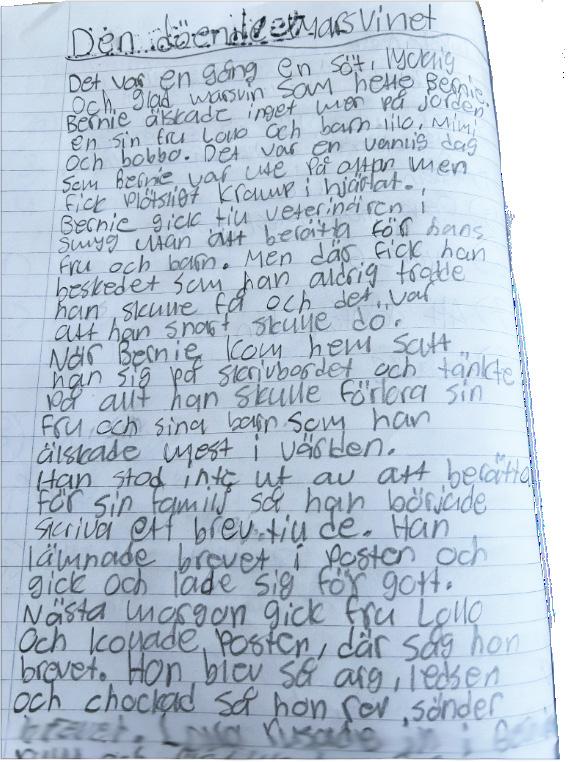 Den döende marsvinet
Det var en gång en söt, lycklig
och glad marsvin som hette Bernie.
Bernie älskade inget mer på jorden
en sin fru Lollo och barn lilo, Mimi
och bobbo. Det var en vanlig dag
som Bernie var ute på altan men
fick plötsligt kramp i hjärtat.
Bernie gick till veterinären i
smyg utan att berätta för hans
fru och barn. Men där fick han
beskedet som han aldrig trodde
han skulle få och det var
att han snart skulle dö.
När Bernie kom hem satt
han sig på skrivbordet och tänkte
på allt han skulle förlora sin
fru och sina barn som han
älskade mest i världen.
Han stod inte ut av att berätta
för sin familj så han började
skriva ett brev till de. Han
lämnade brevet i posten och
gick och lade sig för gott.
Nästa morgon gick fru Lollo
och kollade posten, där såg hon
brevet. Hon blev så arg, ledsen
och chockad så hon rev sönder
brevet. rusade in i